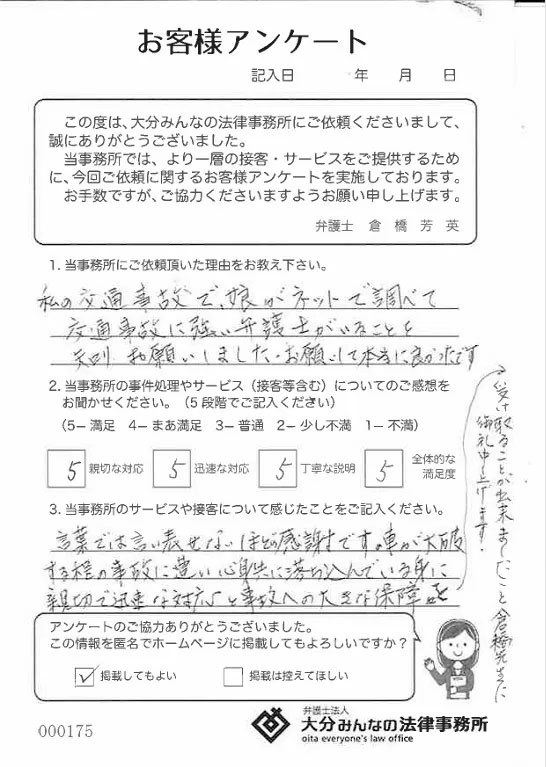 お客様アンケート
記入日 年 月 日
この度は、大分みんなの法律事務所にご依頼くださいまして、
誠にありがとうございました。
当事務所では、より一層の接客・サービスをご提供するため
に、今回ご依頼に関するお客様アンケートを実施しております。
お手数ですが、ご協力くださいますようお願い申し上げます。
弁護士 倉 橋 芳 英
1. 当事務所にご依頼頂いた理由をお教え下さい。
私の交通事故で、娘がネットで調べて
交通事故に強い弁護士がいることを
知り、お願いしました。お願いして本当に良かったです
2. 当事務所の事件処理やサービス（接客等含む）についてのご感想を
お聞かせください。（5段階でご記入ください）
（5－満足 4－まあ満足 3－普通 2－少し不満 1－不満）
5 親切な対応 5 迅速な対応 5 丁寧な説明 5 全体的な
満足度
3. 当事務所のサービスや接客について感じたことをご記入ください。
言葉では言い表せないほど感謝です。車が大破
する程の事故に遭い心身共に落ち込んでいる身に
親切で迅速な対応と事故への大きな保障を
受け取ることが出来ましたこと倉橋先生に
御礼申し上げます。
アンケートのご協力ありがとうございました。
この情報を匿名でホームページに掲載してもよろしいですか？
✓ 掲載してもよい 掲載は控えてほしい
000175
弁護士法人
大分みんなの法律事務所
oita everyone's law office